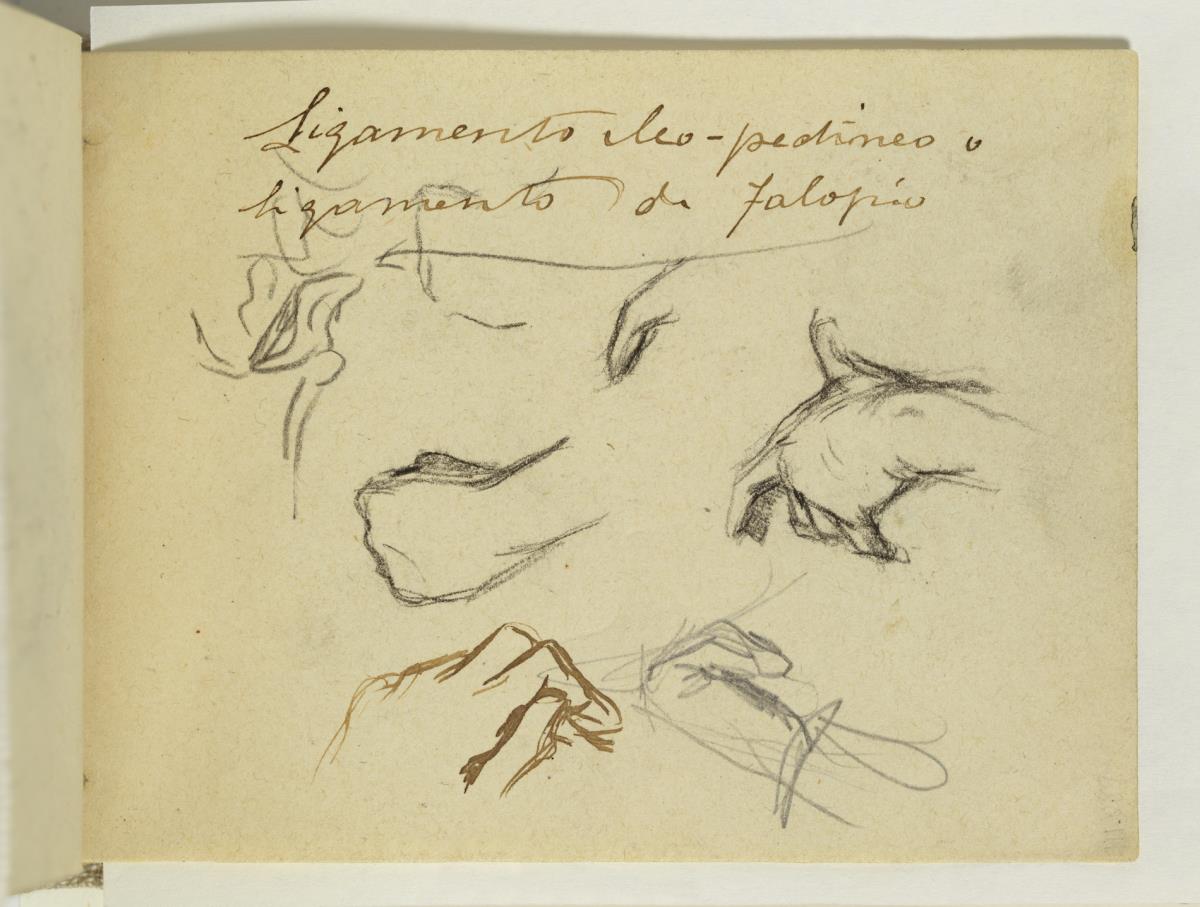 Ligamento ileo-pectineo o
ligamento de Falopio